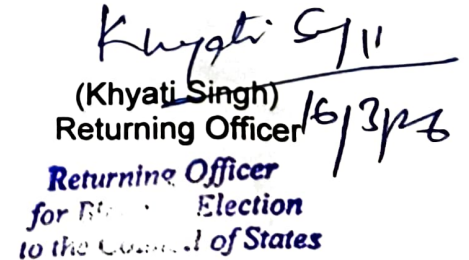 Khyati
(Khyati Singh)
Returning Officer 16/3/26
Returning Officer
for Election
to the of States